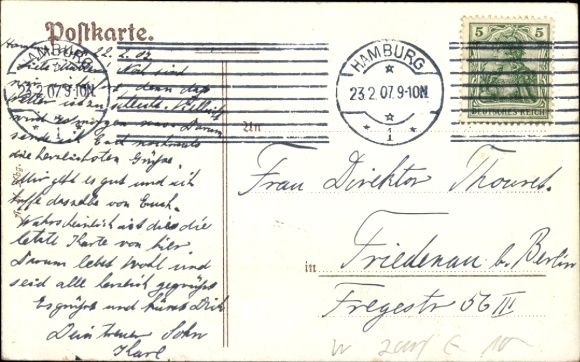 Postkarte.
HAMBURG
23.2.07.9-10N.
1
HAMBURG
23.2.07.9-10N.
1
5 5
DEUTSCHES REICH
22.2.07
Liebe Mutter! Noch sind
wir
denn das
Wetter ist zu
wird es morgen was. Darum
sende ich Euch nochmals
die herzlichsten Grüße.
Mir geht es gut und ich
hoffe dasselbe von Euch.
Wahrscheinlich ist dies die
letzte Karte von hier.
Darum lebt wohl und
seid alle herzlich gegrüßt
Es grüßt und küsst Dich
Dein treuer Sohn
Karl
An
Frau Direktor Thouret.
in Friedenau b. Berlin
Fregestr 56 III